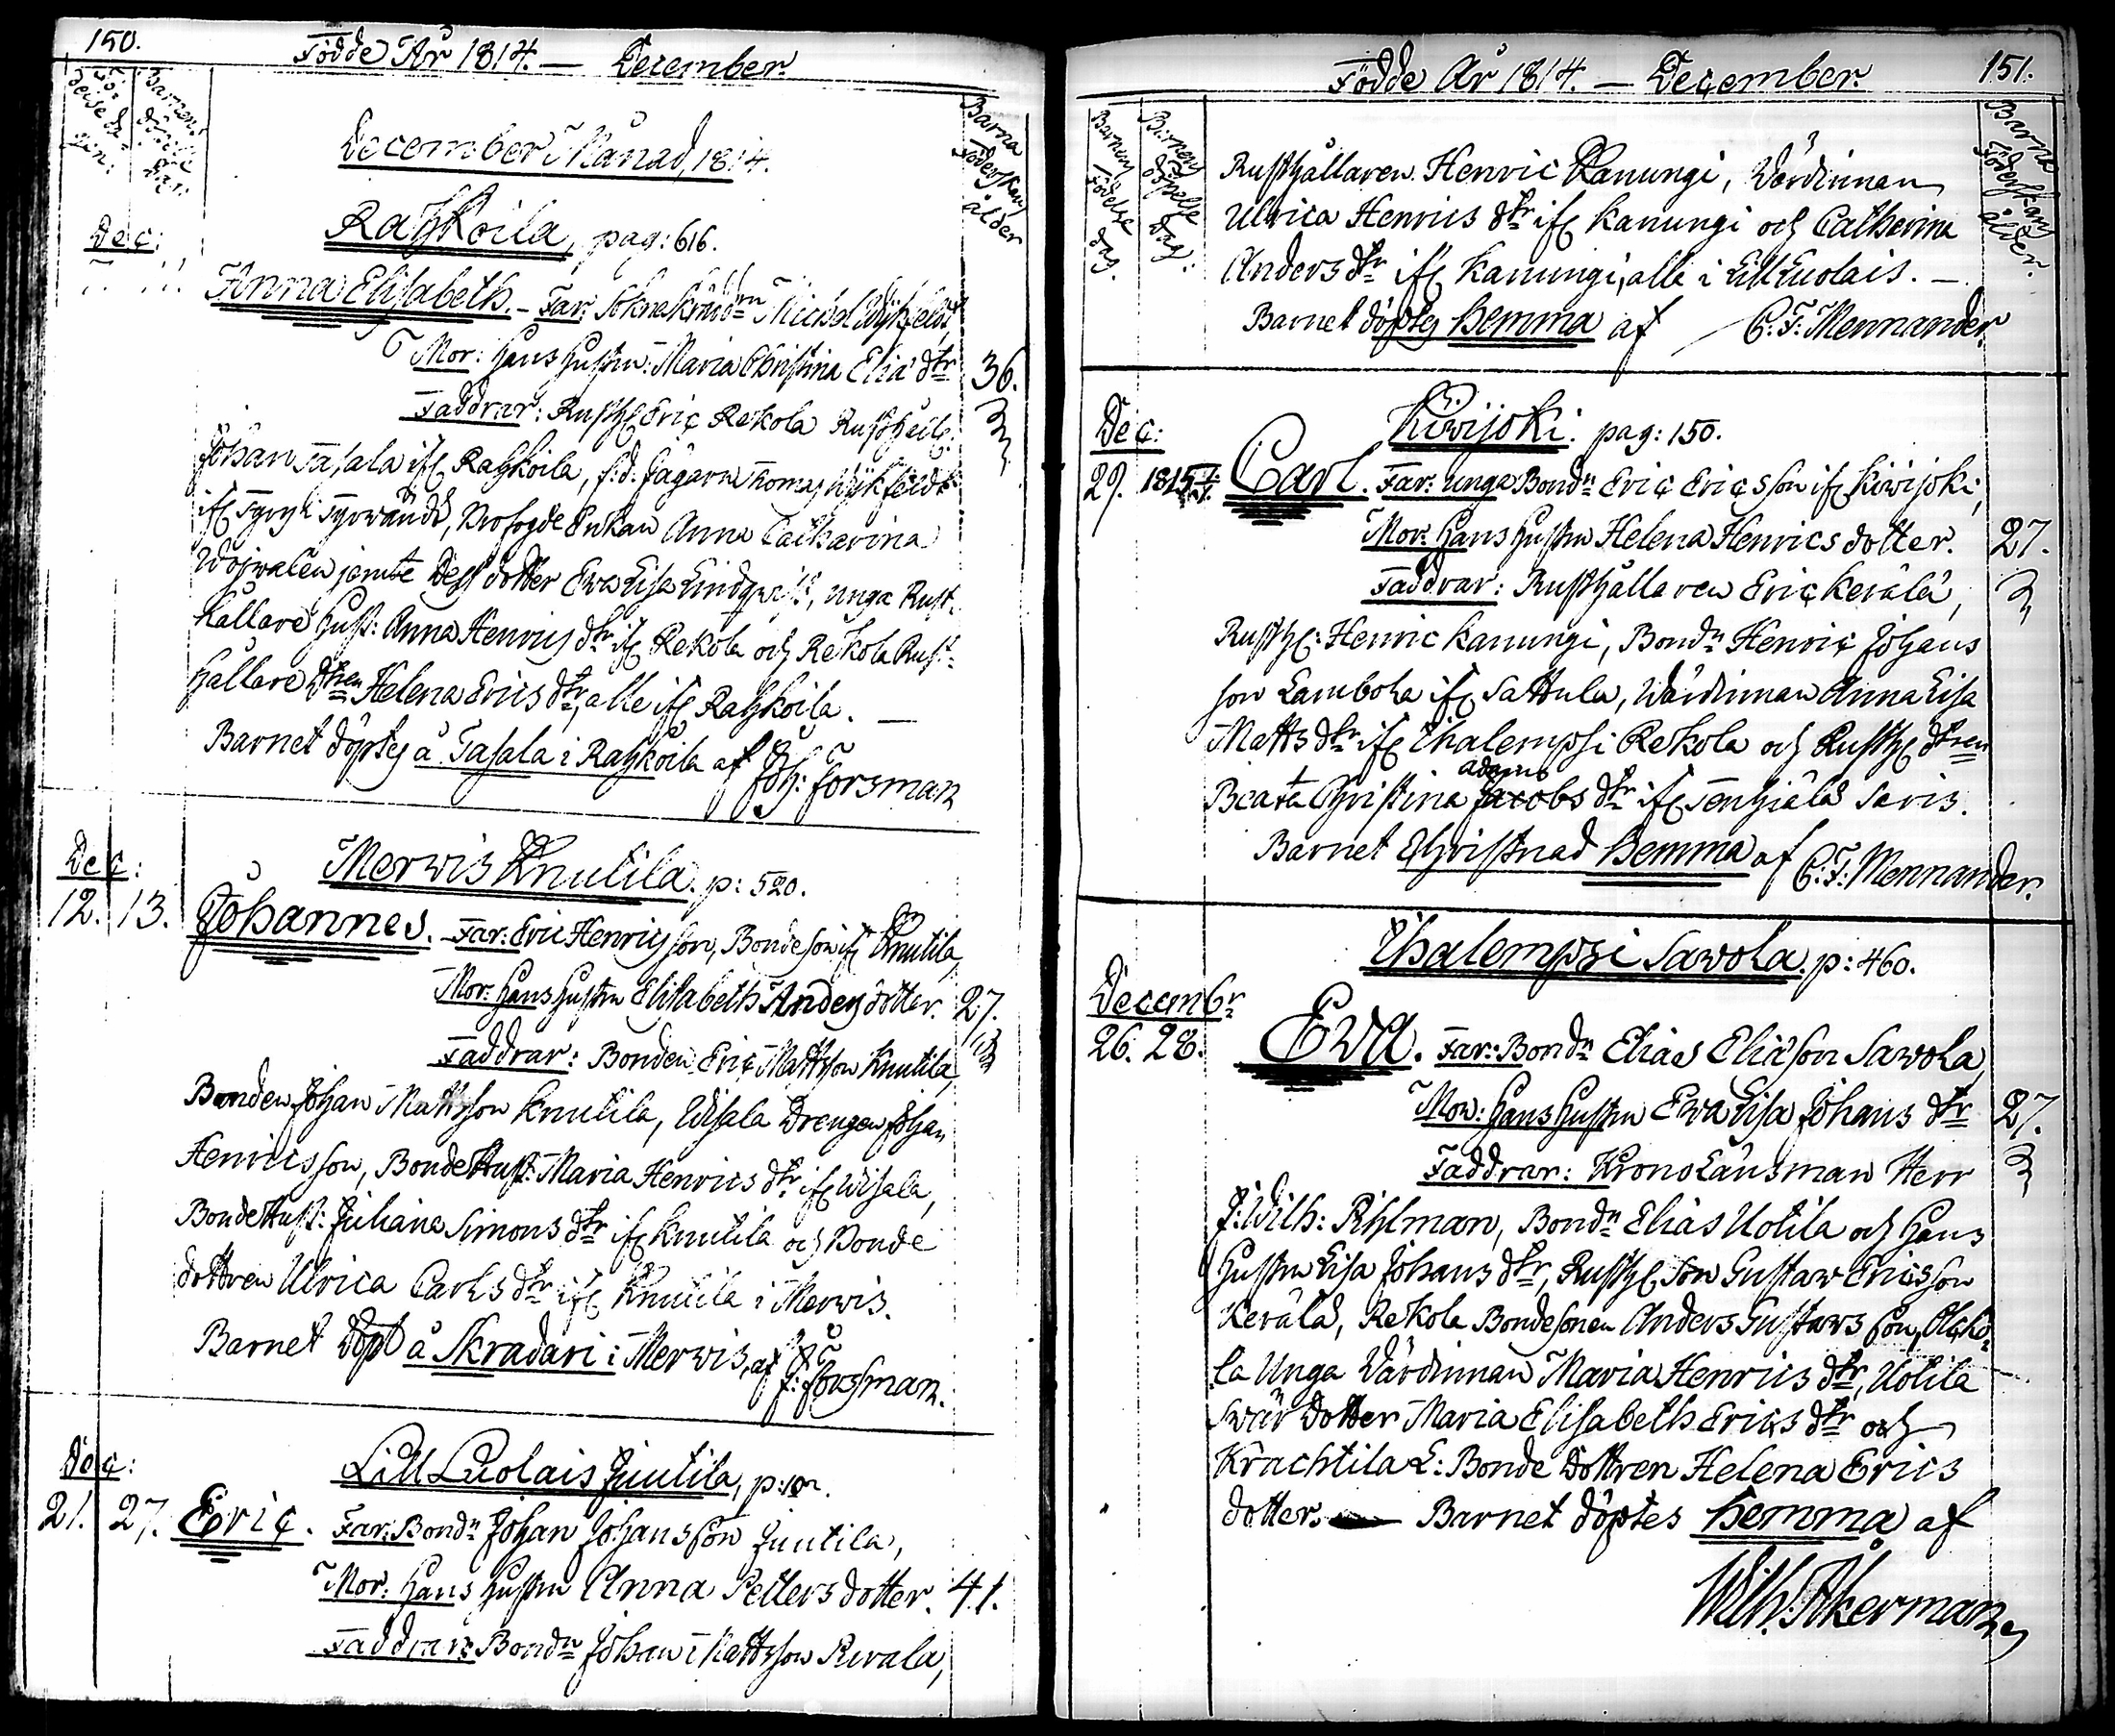 150.
Födde År 1814. — December.
Barna Föderskans ålder
December Månad, 1814.
Dec:
Rahkoila, pag: 616.
Anna Elisabeth. — Far: Michel
Mor: hans hustru: Maria Christina Elia dtr 36.
Faddrar: Rusth. Eric Rekola
Johan Tasala ifr. Rahkoila, f.d. Thomas
ifr. Enkan Anna Catharina
jemte dess dotter Ewa Lisa Lindqwist, unga Rust-
hållare hust: Anna Henrics dtr ifr. Rekola och Rekola Rust-
hållare dtren Helena Erics dtr, alle ifr. Rahkoila. —
Barnet döptes å Tasala i Rahkoila af Joh: Forsman
Merwis Knutila. p: 520.
Dec:
12. 13. Johannes. Far: Eric Henricsson, Bondeson ifr. Knutila,
Mor: hans hustru Elisabeth Anders dotter. 27.
Faddrar: Bonden Eric Mattsson Knutila,
Bonden Johan Mattsson Knutila, Wisala Drengen Johan
Henricsson, Bonde Hust: Maria Henrics dtr ifr. Wisala,
Bonde Hust: Juliana Simons dtr ifr. Knutila och Bonde
dottren Ulrica Carls dtr ifr. Knutila i Merwis.
Barnet döpt å Skradari i Merwis, af J: Forsman.
Lill Luolais Juutila, p:
Dec:
21. 27. Eric. Far: Bondn Johan Johansson Juutila,
Mor: hans hustru Anna Petters dotter. 41.
Faddrar: Bondn Johan Mattsson
151.
Födde År 1814. — December.
Barnens Födelse dag.
Barnens döpelse dag:
Barna Föderskans ålder.
Rusthållaren Henric Kanungi, Wärdinnan
Ulrica Henrics dtr ifr. Kanungi och Catharina
Anders dtr ifr. Kanungi, alle i Lill Luolais. —
Barnet döptes hemma af C: F: Mennander.
Kiwijoki. pag: 150.
Dec:
29. 1815 Carl. Far: unga Bondn Eric Ericsson ifr. Kiwijoki,
Mor: hans hustru Helena Henrics dotter. 27.
Faddrar: Rusthållaren Eric Kerälä,
Rusth: Henric Kanungi, Bondn Henric Johans
son Lambola ifr. Sattula, Wärdinnan Anna Lisa
Matts dtr ifr. Ihalempsi Rekola och Rusth. dtren
adams
Beata Christina Jacobs dtr ifr. Saris.
Barnet Christnad hemma af C: F: Mennander.
Ihalempsi Sawola. p: 460.
Decembr
26. 28. Eva. Far: Bondn Elias Eliasson Sawola,
Mor: hans hustru Ewa Lisa Johans dtr 27.
Faddrar: Krono Länsman Herr
J: Wilh: Pihlman, Bondn Elias Uotila och hans
hustru Lisa Johans dtr, Rusth. Son Gustaw Ericsson
Kerälä, Rekola Bondesonen Anders Gustawsson,
la Unga Wärdinnan Maria Henrics dtr, Uotila
Swär dotter Maria Elisabeth Erics dtr och
Krachtila L: Bonde dottren Helena Erics
dotter. — Barnet döptes hemma af
Wilh. Åkerman.